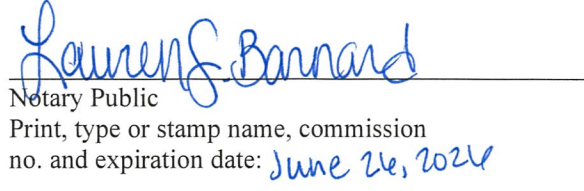 Lauren S. Barnard
Notary Public
Print, type or stamp name, commission
no. and expiration date: June 26, 2026